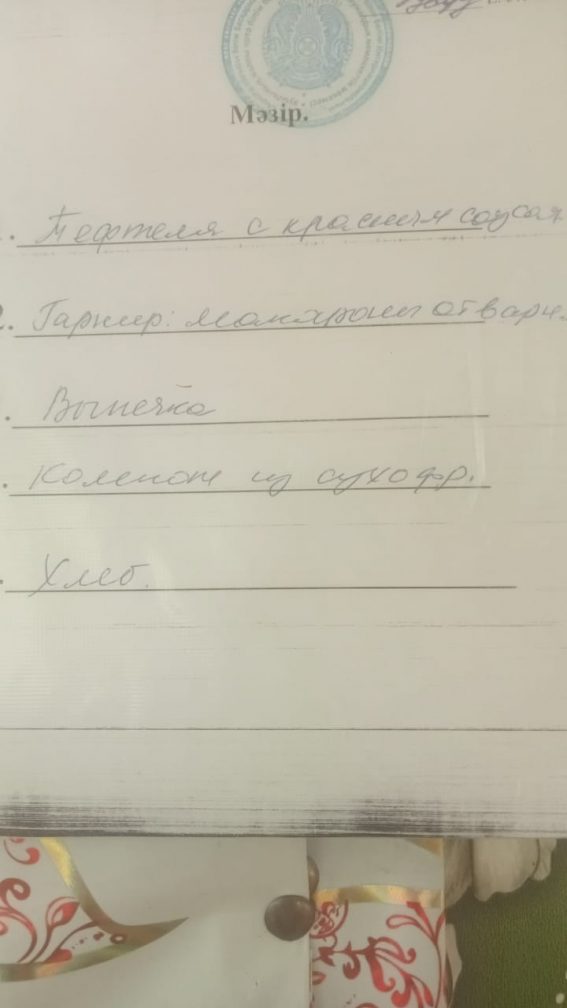 Мәзір.
. Тефтеля с красным соусом
2. Гарнир: макароны отварн.
. Выпечка
. Компот из сухофр.
. Хлеб.